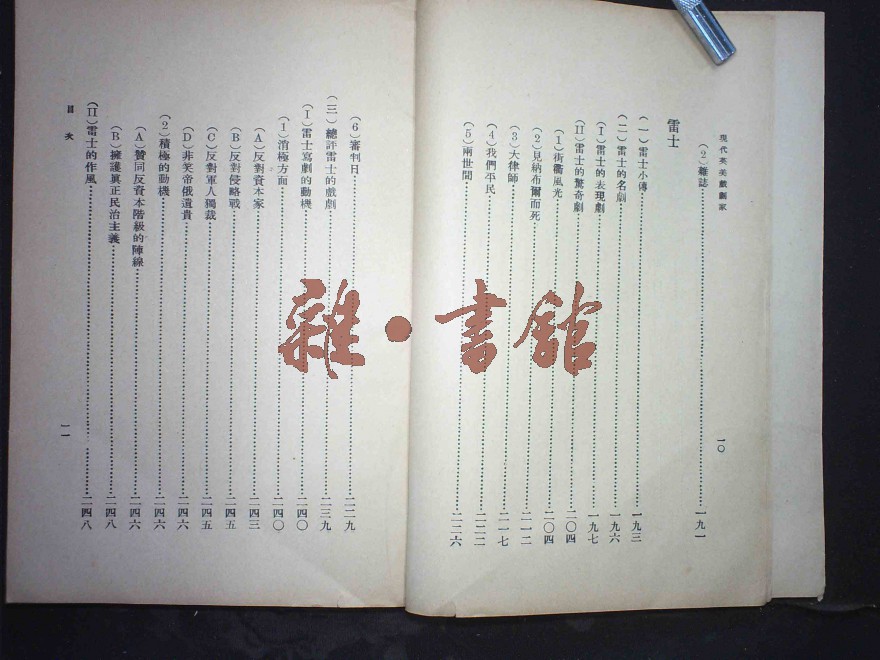 現代英美戲劇家
一〇
(2)雜誌……一九一
雷士
(一)雷士小傳……一九三
(二)雷士的名劇……一九六
(I)雷士的表現劇……一九七
(II)雷士的驚奇劇……二〇四
(1)街衢風光……二〇四
(2)見納布爾而死……二一二
(3)大律師……二一七
(4)我們平民……二二二
(5)兩世間……二二六
(6)審判日……二二九
(三)總評雷士的戲劇……二三九
(I)雷士寫劇的動機……二四〇
(1)消極方面……二四〇
(A)反對資本家……二四三
(B)反對侵略戰……二四五
(C)反對軍人獨裁……二四五
(D)非笑帝俄遺貴……二四六
(2)積極的動機……二四六
(A)贊同反資本階級的陣線……二四六
(B)擁護眞正民治主義……二四八
(II)雷士的作風……二四八
目次
一一
雜·書館